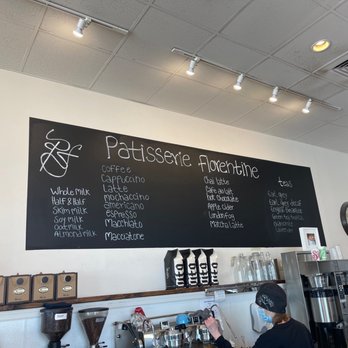 Patisserie florentine
Whole Milk
Half & Half
Skim milk
Soy milk
oat milk
Almond milk
coffee
Cappuccino
Latte
mochaccino
americano
espresso
Macchiato
Chai latte
Cafe au lait
Hot Chocolate
Apple Cider
London Fog
Matcha Latte
teas
Earl grey